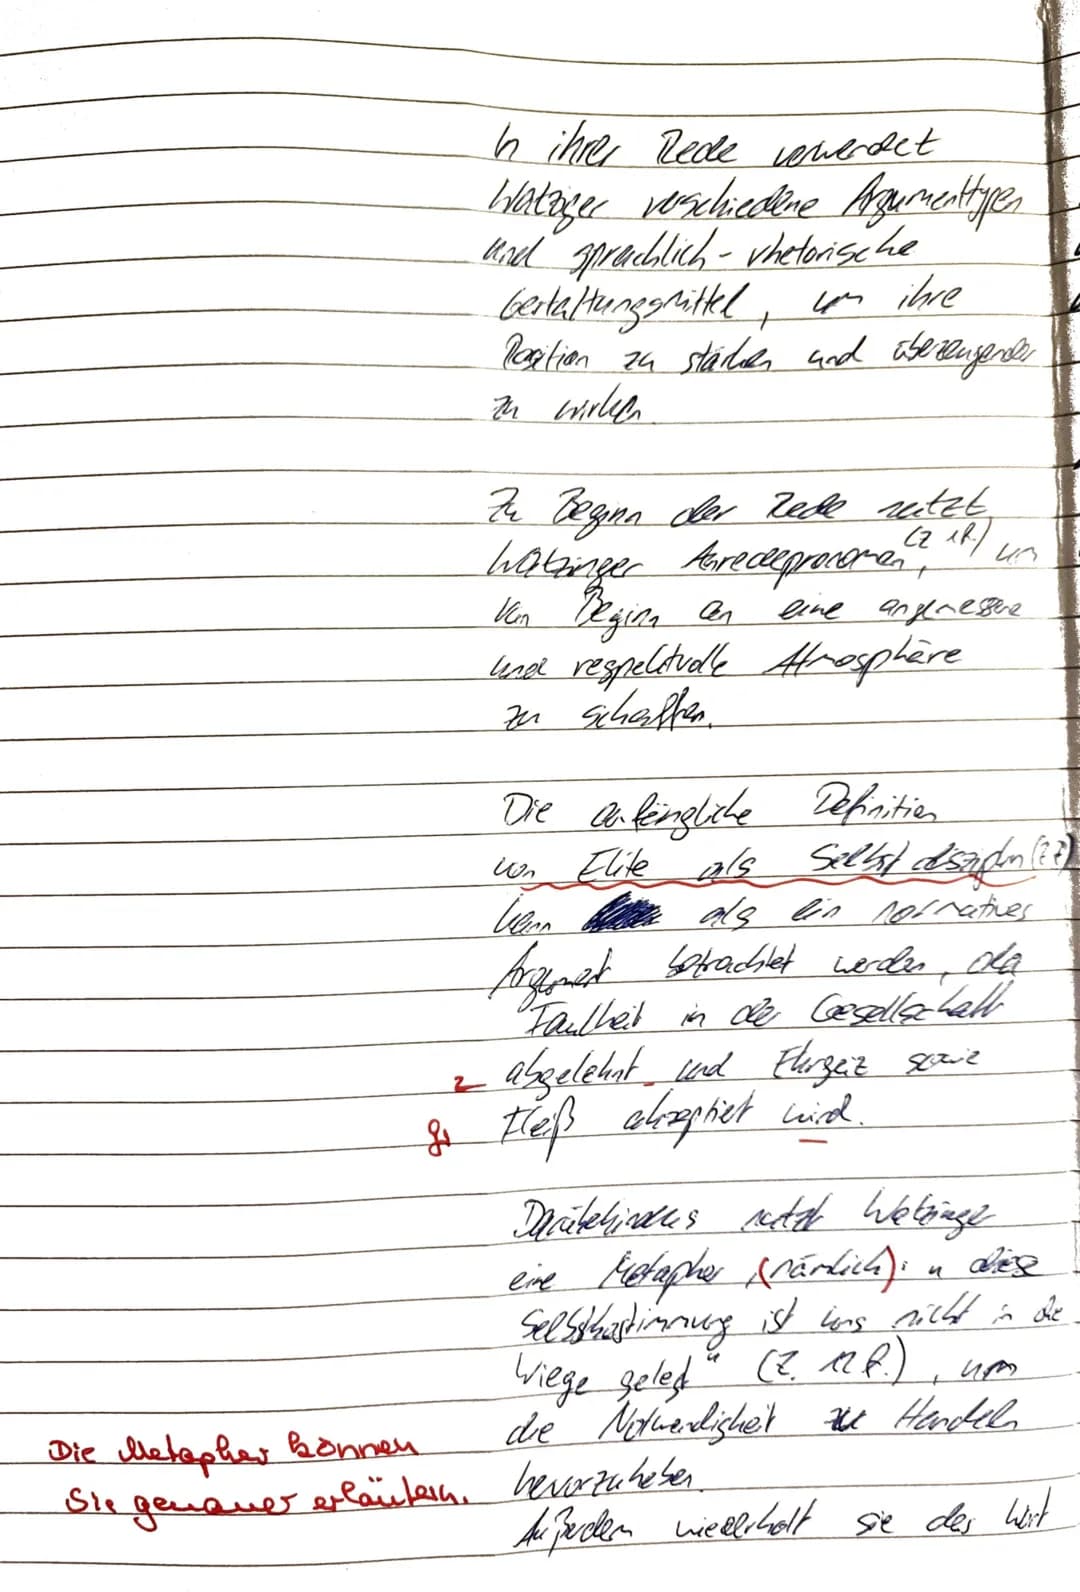 In ihrer Rede verwendet
Watzinger verschiedene Argumenttypen
und sprachlich-rhetorische
Gestaltungsmittel, um ihre
Position zu stärken und überzeugender
zu wirken.
Zu Beginn der Rede nutzt
Watzinger Anredepronomen, (Z 1f.) um
von Beginn an eine angemessene
und respektvolle Atmosphäre
zu schaffen.
Die anfängliche Definition
von Elite als Selbstdisziplin (Z 7)
kann als ein normatives
Argument betrachtet werden, da
Faulheit in der Gesellschaft
z abgelehnt und Ehrgeiz sowie
gr Fleiß akzeptiert wird.
Darüberhinaus nutzt Watzinger
eine Metapher, (nämlich): "diese
Selbstbestimmung ist uns nicht in die
Wiege gelegt" (Z. 12 f.), um
die Notwendigkeit zu Handeln
hervorzuheben.
Die Metapher können
Sie genauer erläutern.
Außerdem wiederholt sie das Wort